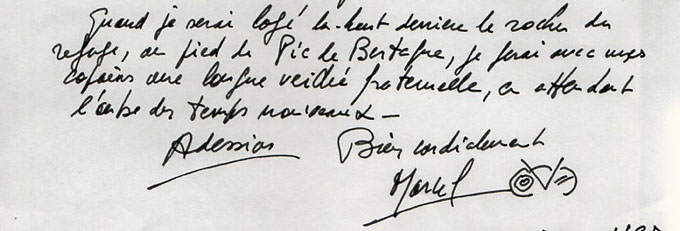 Quand je serai logé là-haut derrière le rocher du
refuge, au pied du Pic de Bertagne, je ferai avec mes
copains une longue veillée fraternelle, en attendant
l'aube des temps nouveaux —
Adessias Bien cordialement
Marcel